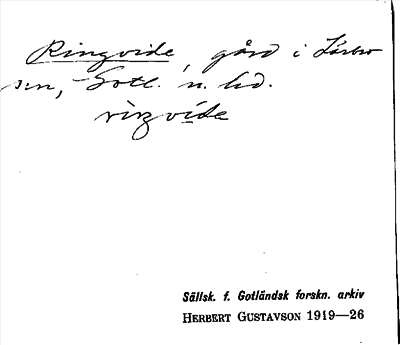 Ringvide, gård i Lärbro
sn, Gotl. n. hd.
riŋvide
Sällsk. f. Gotländsk forskn. arkiv
HERBERT GUSTAVSON 1919—26